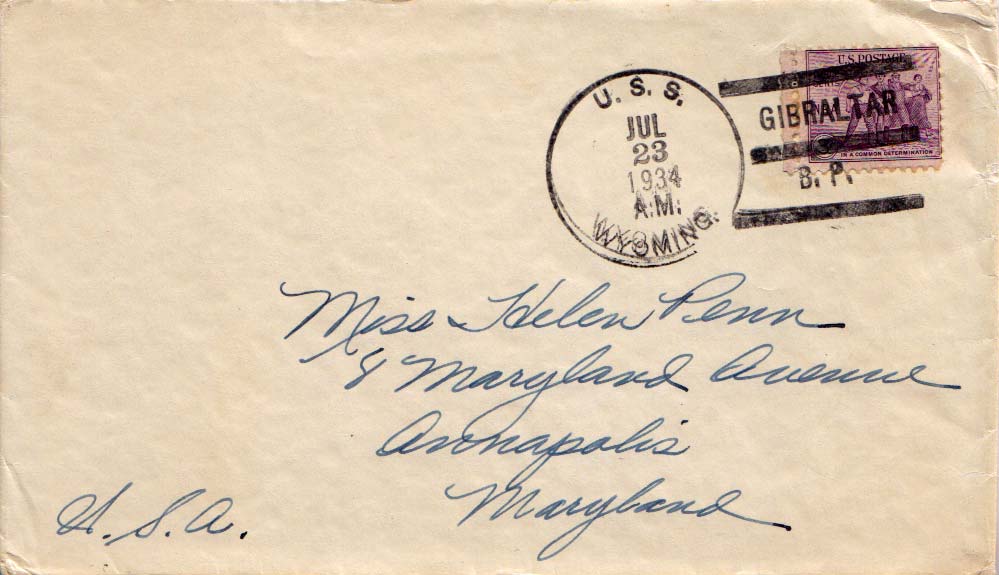 U.S. POSTAGE
U. S. S.
JUL
23
1934
A.M.
WYOMING.
GIBRALTAR
B. P.
IN A COMMON DETERMINATION
Miss Helen Penn
8 Maryland Avenue
Annapolis
Maryland
U. S. A.